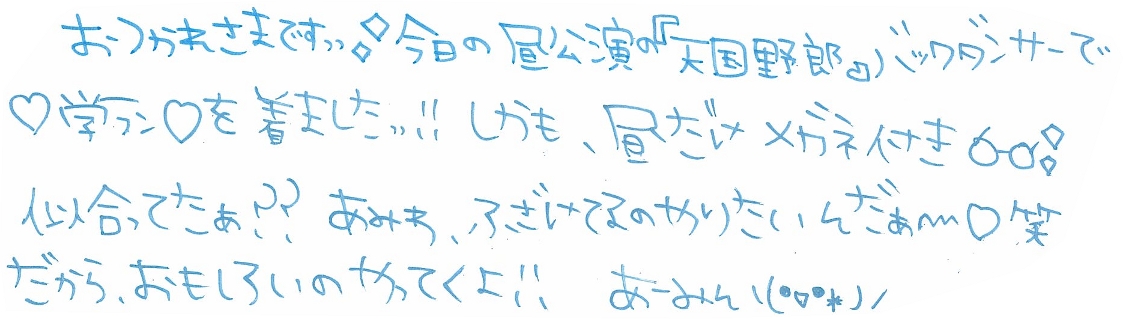 おつかれさまですっっ◇◇今日の昼公演の『天国野郎』バックダンサーで
♡学ラン♡を着ましたっっ!! しかも、昼だけメガネ付きo-o◇◇
似合ってたぁ?? あみゎ、ふざけてるのやりたいんだぁ〜♡笑
だから、おもしろいのやってくよ!! あーみん\(•▽•*)/